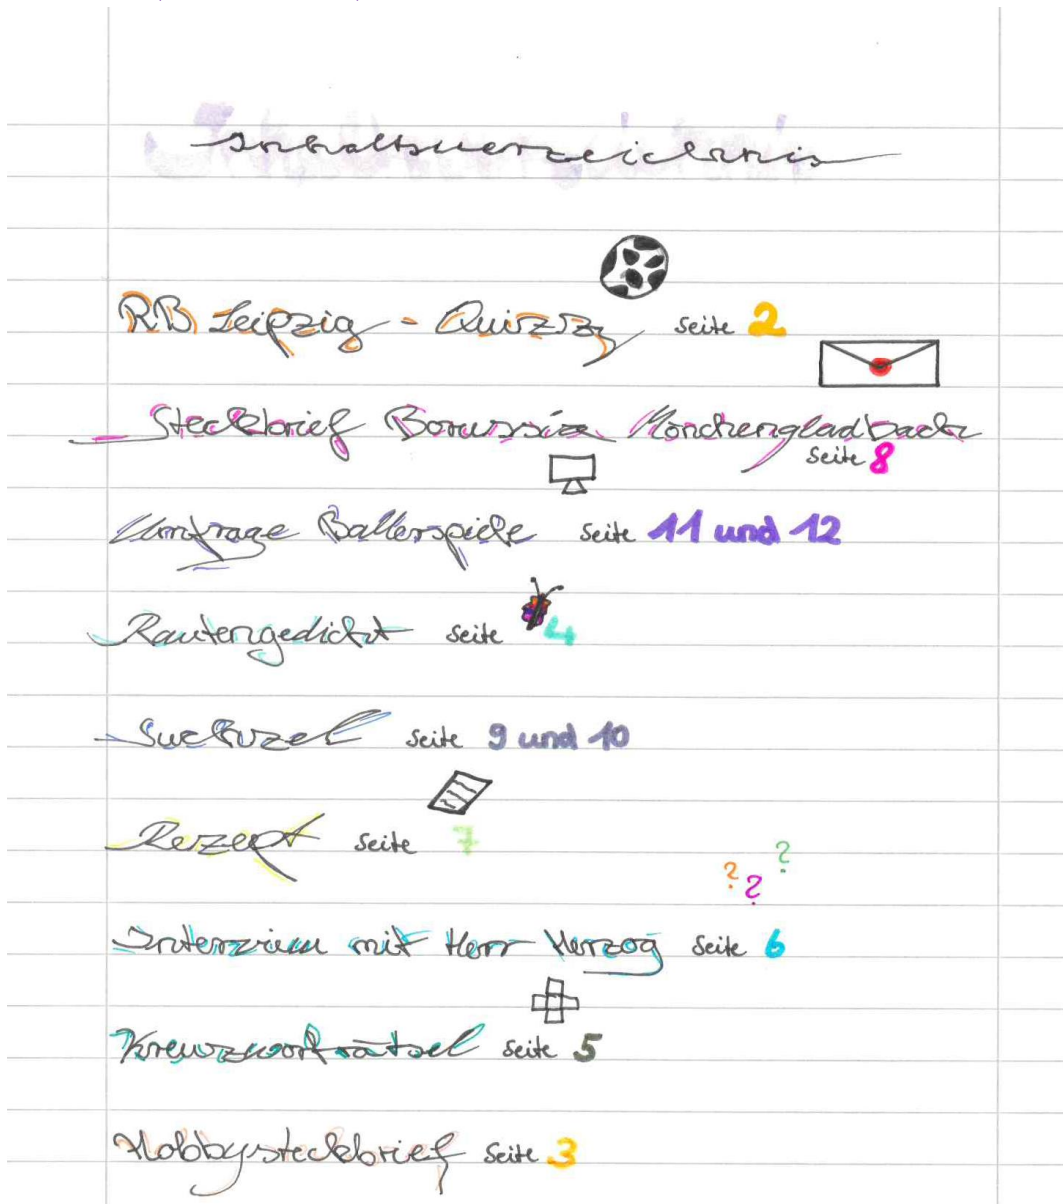 Inhaltsverzeichnis
RB Leipzig - Quizzz Seite 2
Steckbrief Borussia Mönchengladbach
Seite 8
Umfrage Ballerspiele Seite 11 und 12
Rautengedicht Seite 4
Suchsel Seite 9 und 10
Rezept Seite 7
? ? ?
Interview mit Herr Herzog Seite 6
Kreuzworträtsel Seite 5
Hobbysteckbrief Seite 3